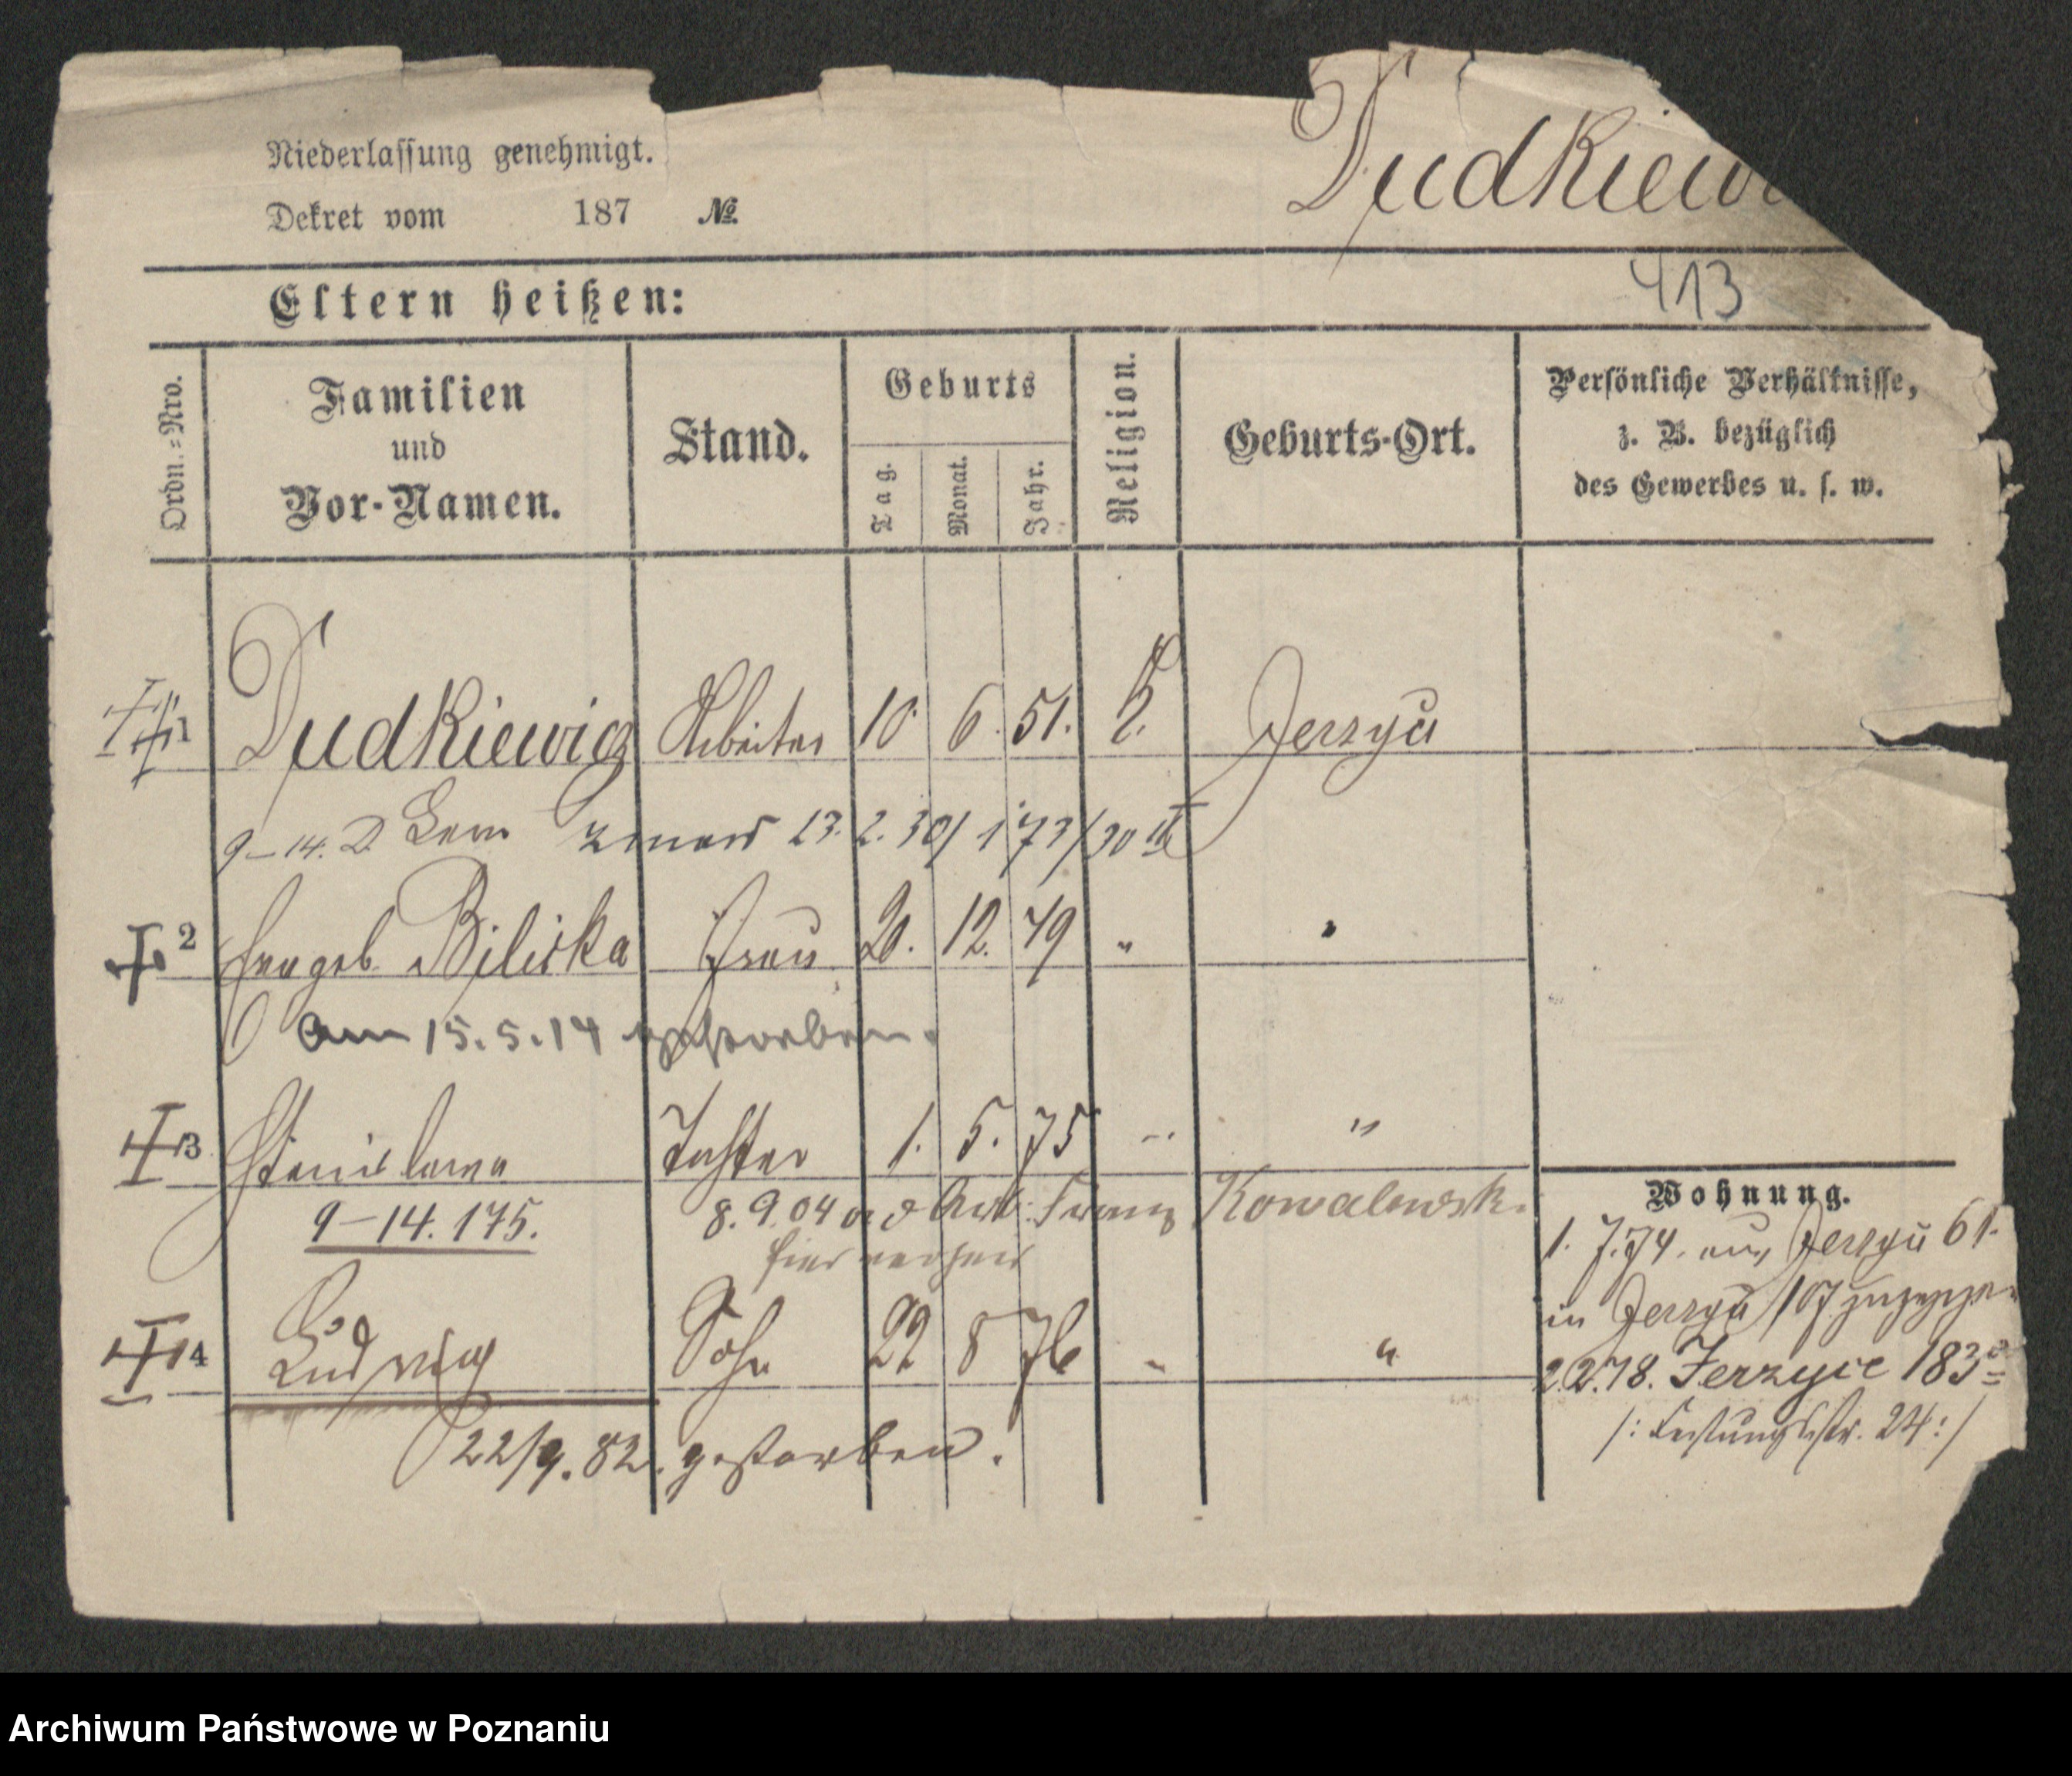 Dudkiew
Niederlassung genehmigt.
Dekret vom 187 №.
413
Eltern heißen:
Ordn.=Nro.
Familien und Vor-Namen.
Stand.
Geburts
Tag.
Monat.
Jahr.
Religion.
Geburts-Ort.
Persönliche Verhältnisse,
z. B. bezüglich
des Gewerbes u. s. w.
1 Dudkiewicz Arbeiter 10. 6. 51. k. Jerzyce
9–14. D. 23. 2. 30/1 73/30
2 geb. Bilicka Frau 20. 12. 49 "
am 15.5.14 gestorben.
3 Stanislawa Tochter 1. 5. 75 " "
9–14. 175. 8. 9. 04 Arb. Franz Kowalewski
hier verh
4 Ludwig Sohn 22 8 76 " "
22/9. 82. gestorben.
Wohnung.
1. 7. 74. aus Jerzyce 61.
in Jerzyce 107 zugezogen
2.2.78. Jerzyce 183
/: Festungsstr. 24 :/
Archiwum Państwowe w Poznaniu